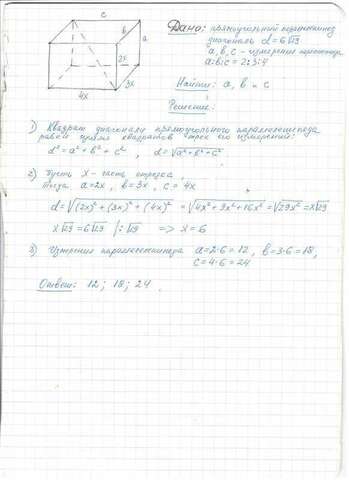 c
в
a
2x
3x
4x
Дано: прямоугольный параллелепипед
диагональ d = 6√29
a, в, c - измерения
a:в:c = 2:3:4
Найти: a, в и c
Решение:
1) Квадрат диагонали прямоугольного параллелепипеда
равен сумме квадратов трёх его измерений:
d² = a² + в² + c² , d = √a² + в² + c²
2) Пусть x - часть отрезка,
Тогда a = 2x, в = 3x, c = 4x
d = √(2x)² + (3x)² + (4x)² = √4x² + 9x² + 16x² = √29x² = x√29
x√29 = 6√29 |:√29 => x = 6
3) Измерения параллелепипеда a = 2·6 = 12, в = 3·6 = 18,
c = 4·6 = 24
Ответ: 12; 18; 24.